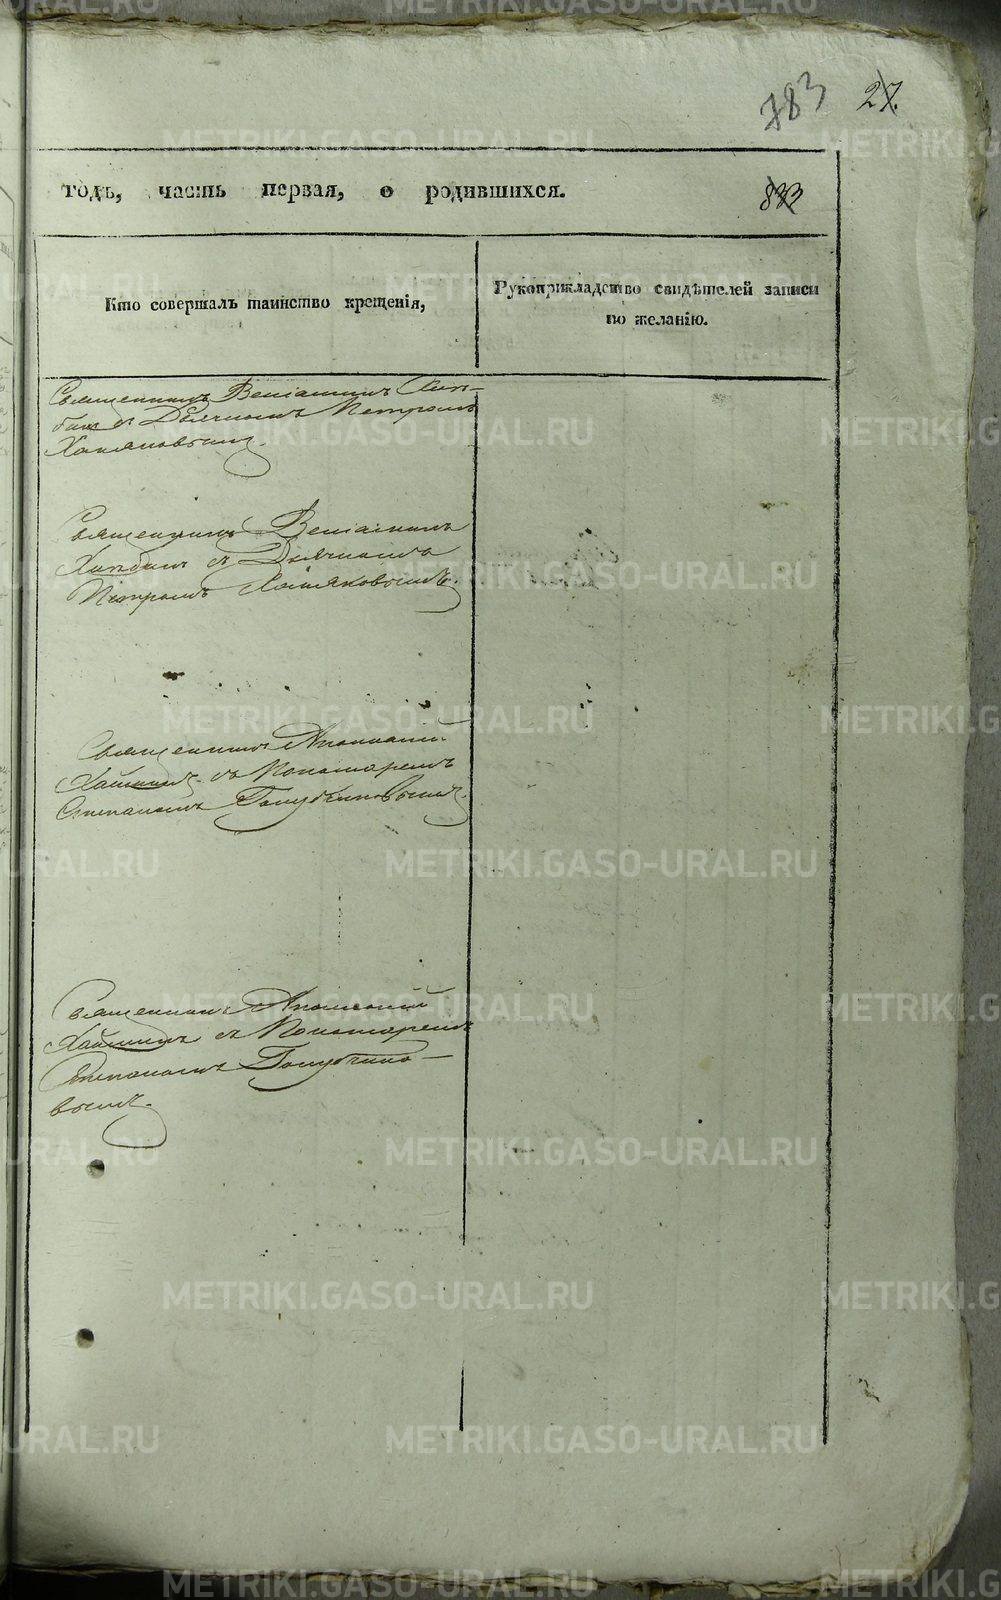 783 27.
годъ, часть первая, о родившихся. 833
Кто совершалъ таинство крещенія,
Рукоприкладство свидѣтелей записи
по желанію.
Священникъ Веніаминъ
съ Дьячкомъ Петромъ
Хомяковымъ.
Священникъ Веніаминъ
съ Дьячкомъ
Петромъ Хомяковымъ.
Священникъ Аполлоній
съ Пономаремъ
Степаномъ Голубчиковымъ.
Священникъ Аполлоній
съ Пономаремъ
Степаномъ Голубчико-
вымъ.
METRIKI.GASO-URAL.RU